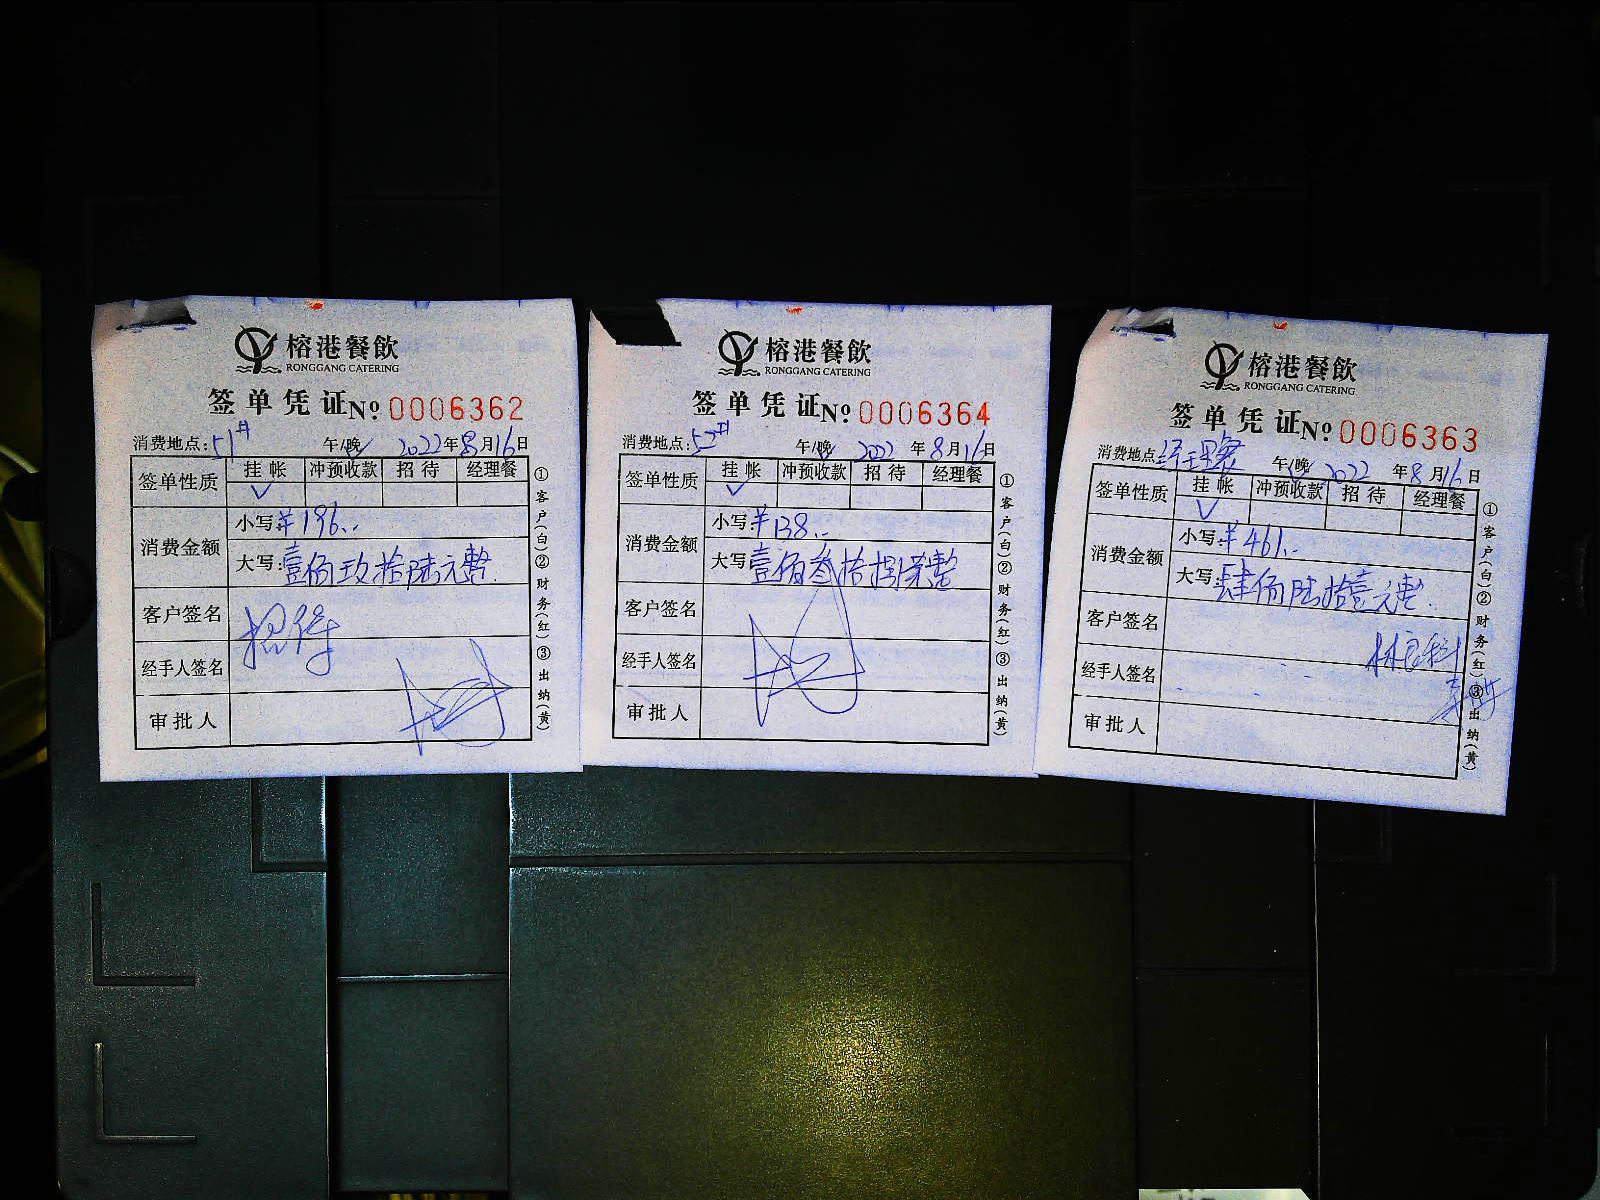 榕港餐飲
RONGGANG CATERING
签单凭证 № 0006362
消费地点: 51# 午/晚✓ 2022年8月16日
签单性质 挂帐 冲预收款 招待 经理餐
✓
消费金额 小写: ¥196..
大写: 壹佰玖拾陆元整
客户签名 招待
经手人签名
审批人
①客户(白)②财务(红)③出纳(黄)
榕港餐飲
RONGGANG CATERING
签单凭证 № 0006364
消费地点: 52# 午/晚✓ 2022年8月16日
签单性质 挂帐 冲预收款 招待 经理餐
✓
消费金额 小写: ¥138..
大写: 壹佰叁拾捌元整
客户签名
经手人签名
审批人
①客户(白)②财务(红)③出纳(黄)
榕港餐飲
RONGGANG CATERING
签单凭证 № 0006363
消费地点: 经理餐 午/晚✓ 2022年8月16日
签单性质 挂帐 冲预收款 招待 经理餐
✓
消费金额 小写: ¥461..
大写: 肆佰陆拾壹元整.
客户签名
经手人签名
审批人
①客户(白)②财务(红)③出纳(黄)